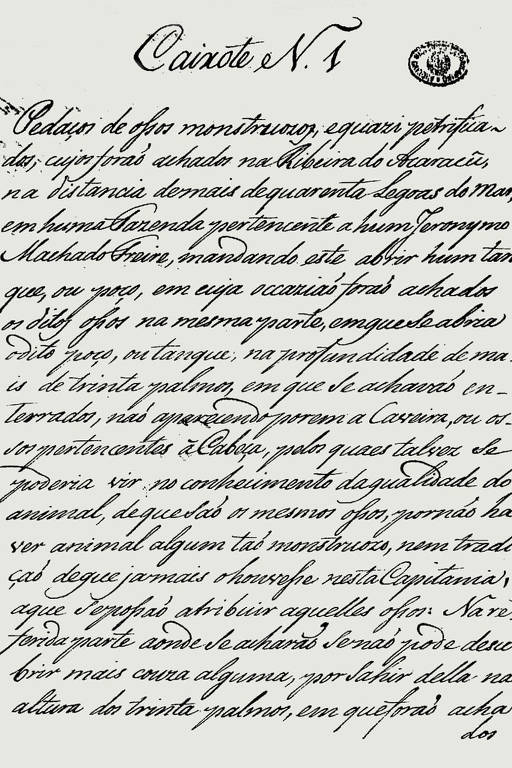 Caixote N. 1
Pedaços de ossos monstruozos, e quazi petrifica-
dos, cujos foraõ achados na Ribeira do Acaracû,
na distancia de mais de quarenta Legoas do Mar,
em huma Fazenda pertencente a hum Jeronymo
Machado Freire, mandando este abrir hum tan
que, ou poço, em cuja occaziaõ foraõ achados
os ditos ossos na mesma parte, em que se abria
o dito poço, ou tanque, na profundidade de ma-
is de trinta palmos, em que se achavaõ en-
terrados, naõ aparecendo porem a Caveira, ou os-
sos pertencentes â Cabeça, pelos quaes talvez se
poderia vir no conhecimento da qualidade do
animal, de que saõ os mesmos ossos, por naõ ha
ver animal algum taõ monstruozo, nem tradi
çaõ de que jamais o houvesse nesta Capitania,
a que se possaõ atribuir aquelles ossos: Na re-
ferida parte aonde se acharaõ se naõ pode descu
brir mais couza alguma, por sahir della na
altura dos trinta palmos, em que foraõ acha
dos